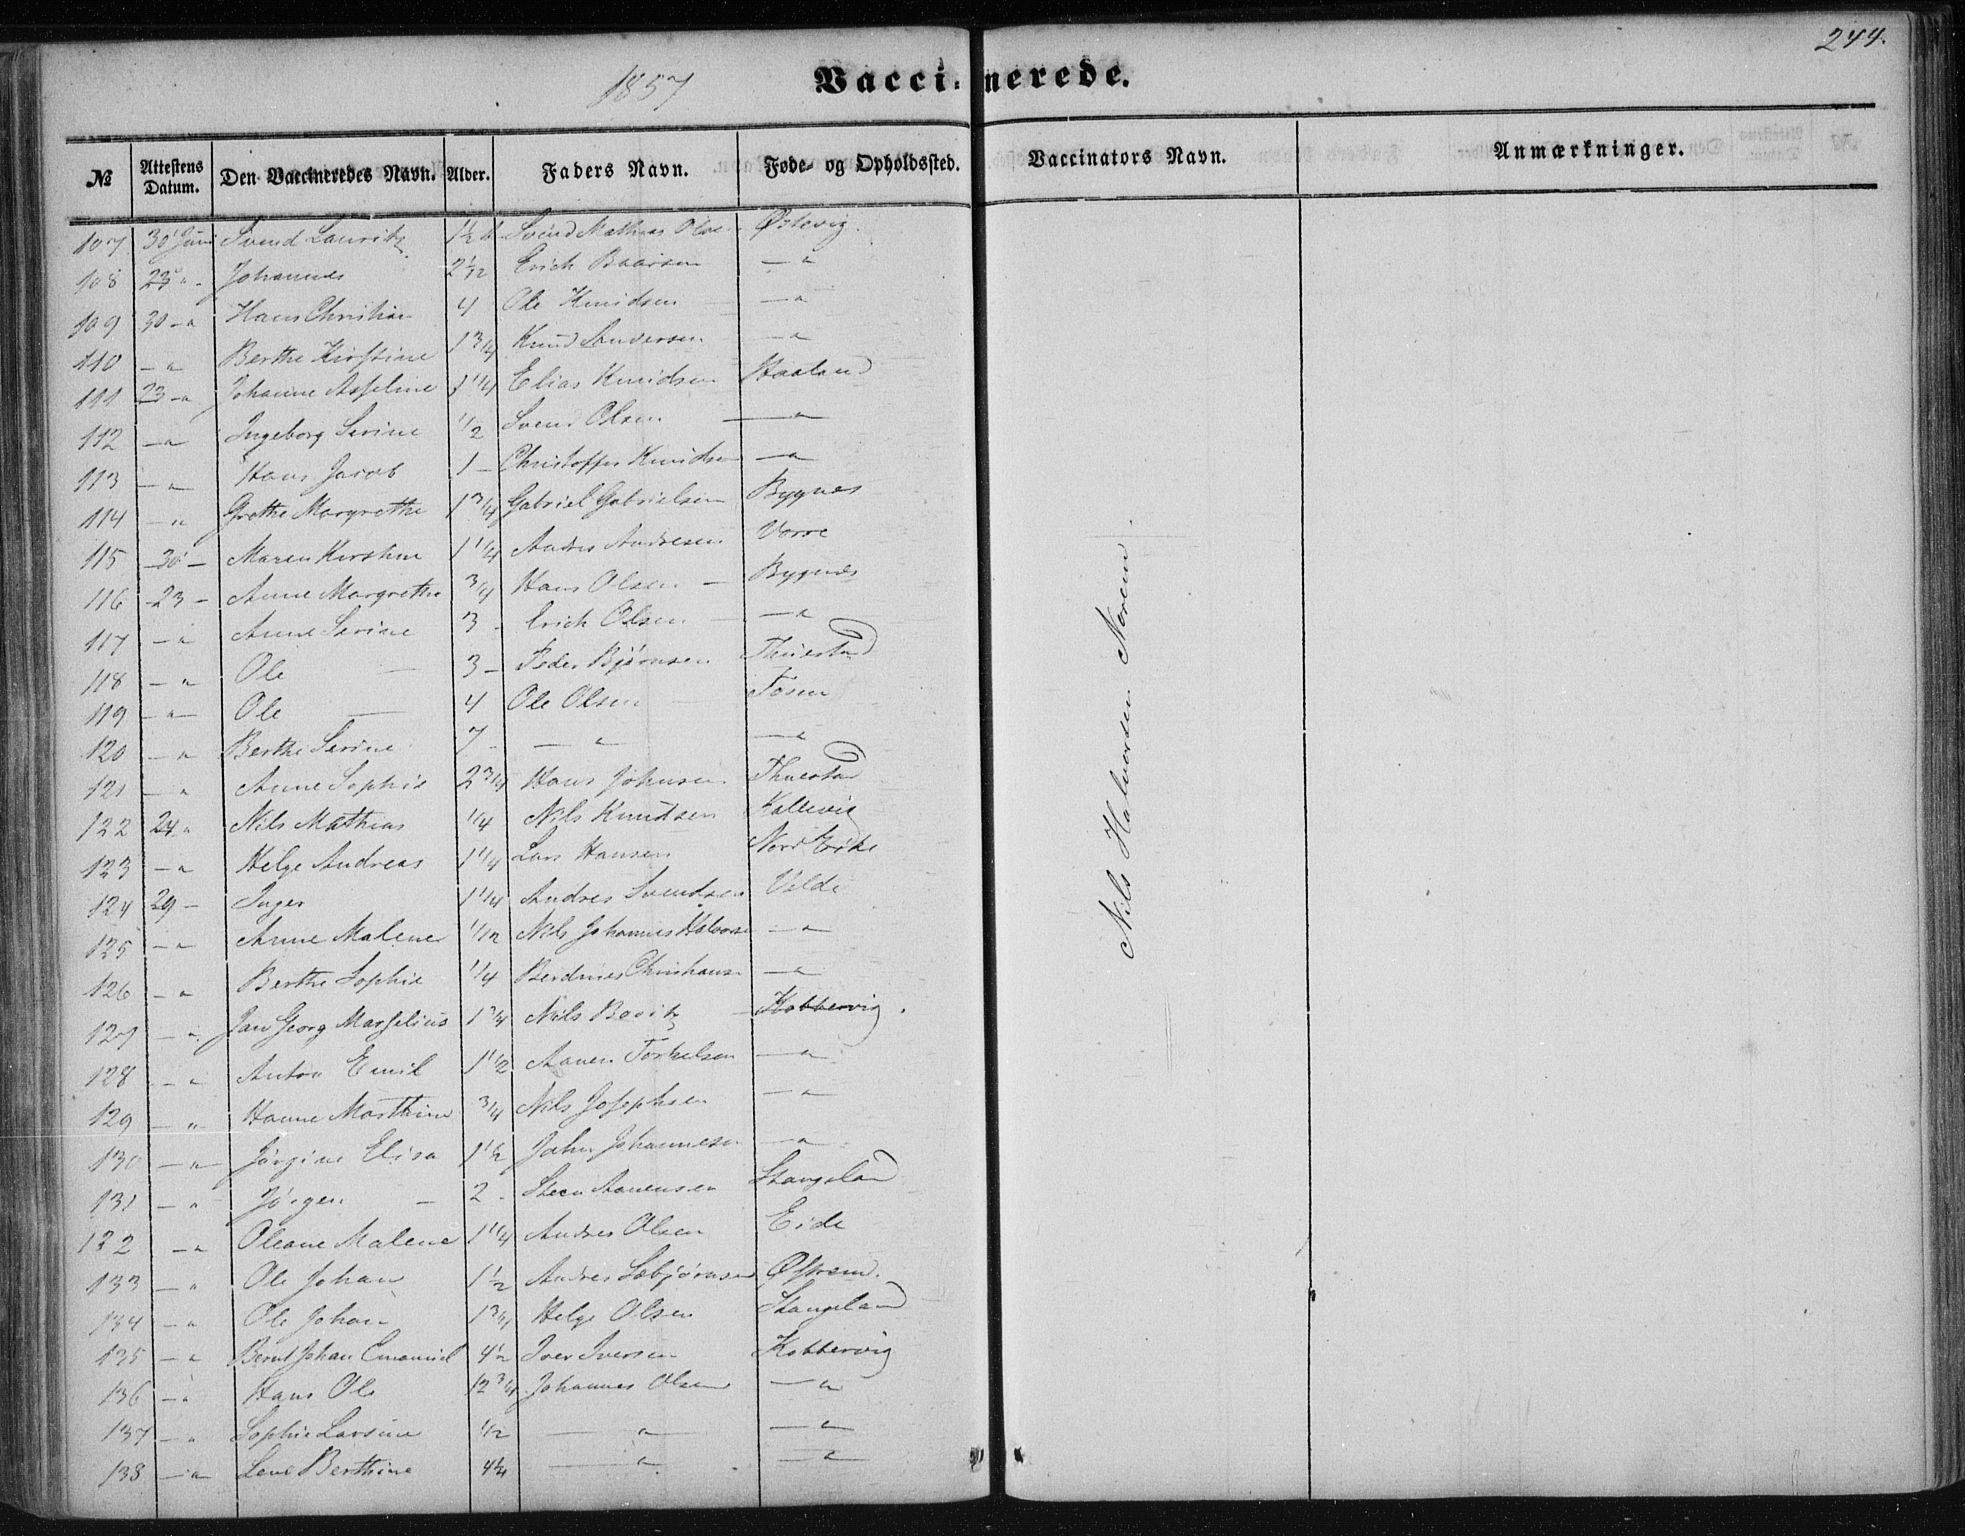 244.
1857
Vaccinerede.
№ Attestens Datum. Den Vaccineredes Navn. Alder. Faders Navn. Føde- og Opholdssted. Vaccinators Navn. Anmærkninger.
107 30 Juni Svend Lauritz 1 1/2 Svend Mathias Østevig.
108 23 " Johannes 2 1/2 Erich Baarsen — "
109 30 — " Hans Christian 4 Ole Knudsen — "
110 — " Berthe Kirstine 1 3/4 Knud Andersen — "
111 23 — " Johanne Asseline 1 1/4 Elias Knudsen Haaland
112 — " Ingeborg Serine 1/2 Svend Olsen — "
113 — " Hans Jacob 1 — Christoffer Knudsen — "
114 — " Grethe Margrethe 1 3/4 Gabriel Gabrielsen Bygnes
115 — 30 — Maren Kirstine 1 1/4 Andres Andresen Vorre
116 — 23 — Anne Margrethe 3/4 Hans Olsen — Bygnes
117 — " Anne Serine 3 — Erich Olsen — "
118 — " Ole — 3 — Peder Bjørnsen Thuestad
119 — " — Ole — 4 Ole Olsen Føsen
120 — " Berthe Serine 7 — — " — "
121 — " Anne Sophie 2 3/4 Hans Johnsen Thuestad
122 24 " Nils Mathias 1/4 Nils Knudsen Kallevig
123 — " Helge Andreas 1 1/4 Lars Hansen Nord
124 29 — Inger 1 1/4 Andres Svendsen Velde
125 — " Anne Malene 1/12 Nils Johannes Halvors — "
126 — " Berthe Sophie 1/4 Berdines Christians — "
127 — " Jan Georg Marselius 1 3/4 Nils Kobbervig.
128 — " Anton Emil 1 1/2 Aanen Torkelsen — "
129 — " Hanne Marthine 3/4 Nils Josephsen — "
130 — " — Jørgine Elisa 1 1/2 John Johannesen — "
131 — " Jørgen — 2 — Steen Aanensen Stangeland
132 — " Oleane Malene 1 1/4 Andres Olsen Eide
133 — " Ole Johan 1 1/2 Andres Sebjørnsen Østrem.
134 — " Ole Johan 1 3/4 Helge Olsen Stangeland
135 — " Bernt Johan Emanuel 4 1/2 Iver Iversen Kobbervig
136 — " Hans Ole 12 3/4 Johannes Olsen — "
137 — " Sophie Lavsine 1/2 — " — "
138 — " — Lene Berthine 4 1/4 — " — "
Nils Halvorsen Norem.